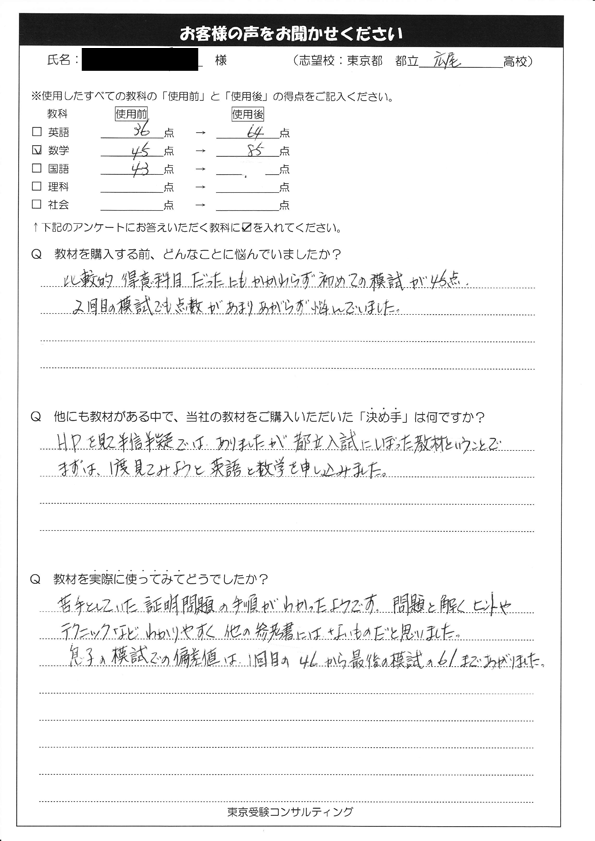 お客様の声をお聞かせください
氏名: 様 （志望校：東京都 都立 広尾 高校）
※使用したすべての教科の「使用前」と「使用後」の得点をご記入ください。
教科 使用前 使用後
□ 英語 36 点 → 64 点
☑ 数学 45 点 → 85 点
□ 国語 43 点 → . 点
□ 理科 点 → 点
□ 社会 点 → 点
↑下記のアンケートにお答えいただく教科に☑を入れてください。
Q 教材を購入する前、どんなことに悩んでいましたか？
比較的 得意科目 だったにもかかわらず 初めての模試が45点.
2回目の模試でも点数があまりあがらず悩んでいました。
Q 他にも教材がある中で、当社の教材をご購入いただいた「決め手」は何ですか？
HPを見て半信半疑ではありましたが都立入試にしぼった教材ということで
まずは、1度見てみようと英語と数学を申し込みました。
Q 教材を実際に使ってみてどうでしたか？
苦手としていた証明問題の手順がわかったようです。問題を解くヒントや
テクニックなどわかりやすく他の参考書にはないものだと思いました。
息子の模試での偏差値は、1回目の46から最後の模試の61まであがりました。
東京受験コンサルティング